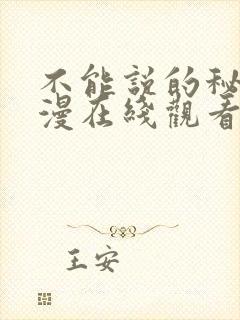 不能説的秘
漫在綫觀看
王安